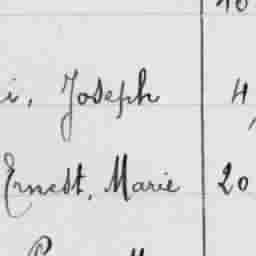 i, Joseph 4
Ernest, Marie 20